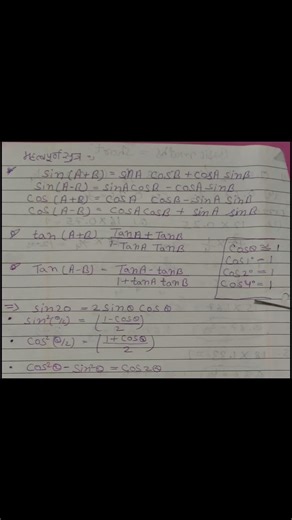 महत्वपूर्ण सूत्र -:
sin (A+B) = sinA cosB + cosA sinB
sin(A-B) = sinA cosB - cosA sinB
Cos (A+B) = CosA CosB - sinA sinB
Cos (A-B) = CosA CosB + sinA sinB
tan (A+B) TanA + TanB
TanA TanB
Tan (A-B) - TanA - tanB
1 + tanA tanB
Cos 1° = 1
Cos 2° = 1
Cos 4° = 1
⇒ sin2θ = 2 sinθ cosθ
sin²(θ/2) = (1 - cosθ / 2)
Cos²(θ/2) = (1 + cosθ / 2)
Cos²θ - sin²θ = Cos2θ